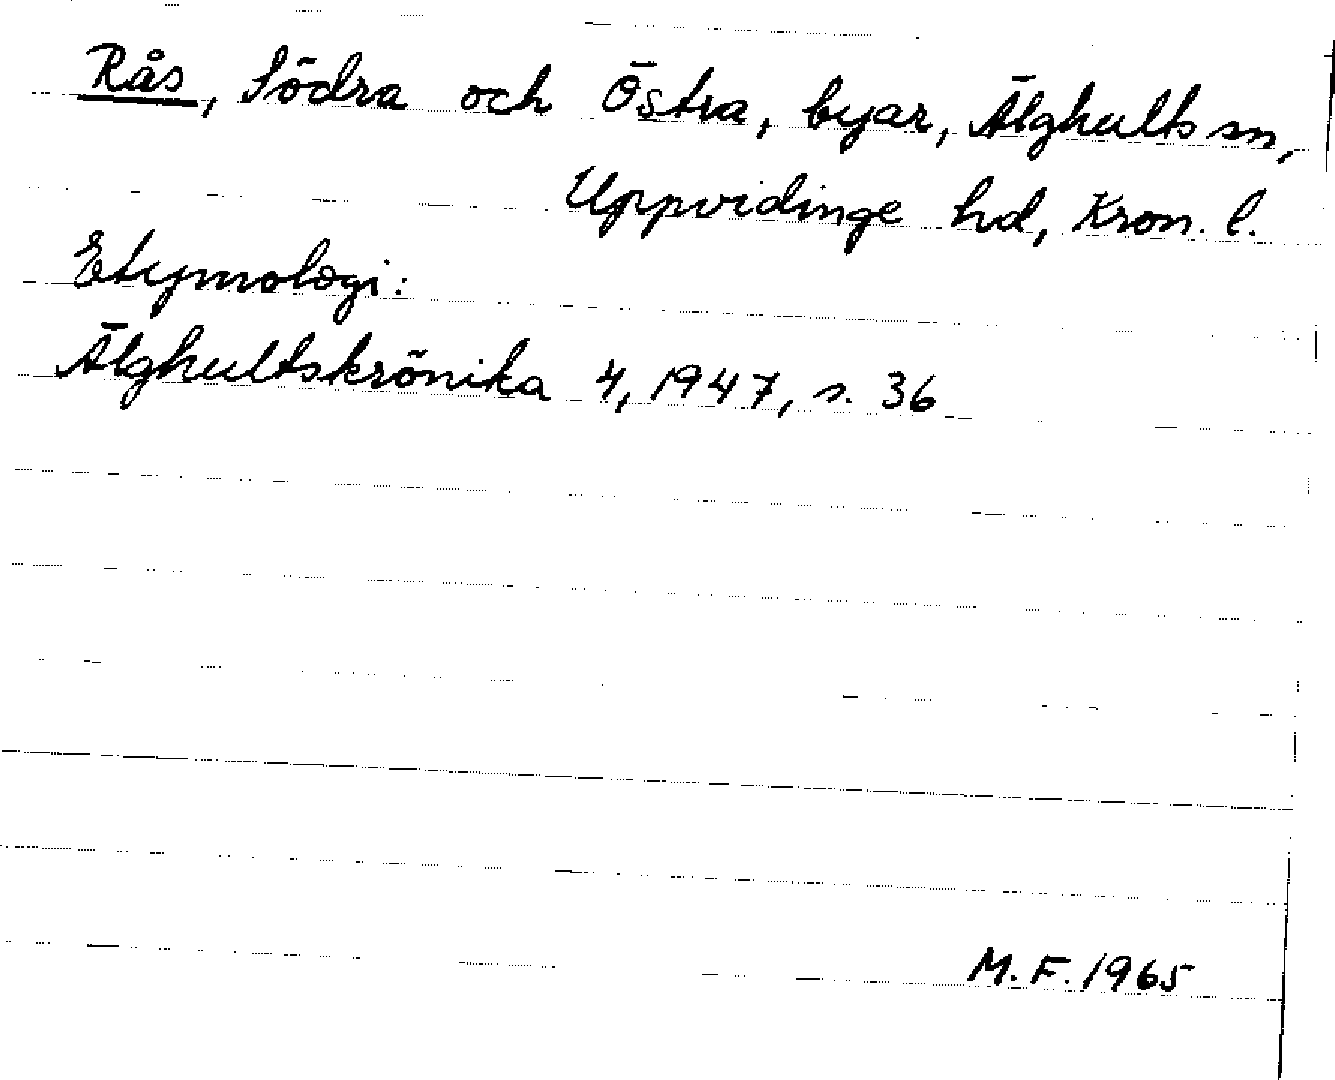 Rås, Södra och Östra, byar, Älghults sn,
Uppvidinge hd, Kron. l.
Etymologi:
Älghultskrönika 4, 1947, s. 36
M. F. 1965